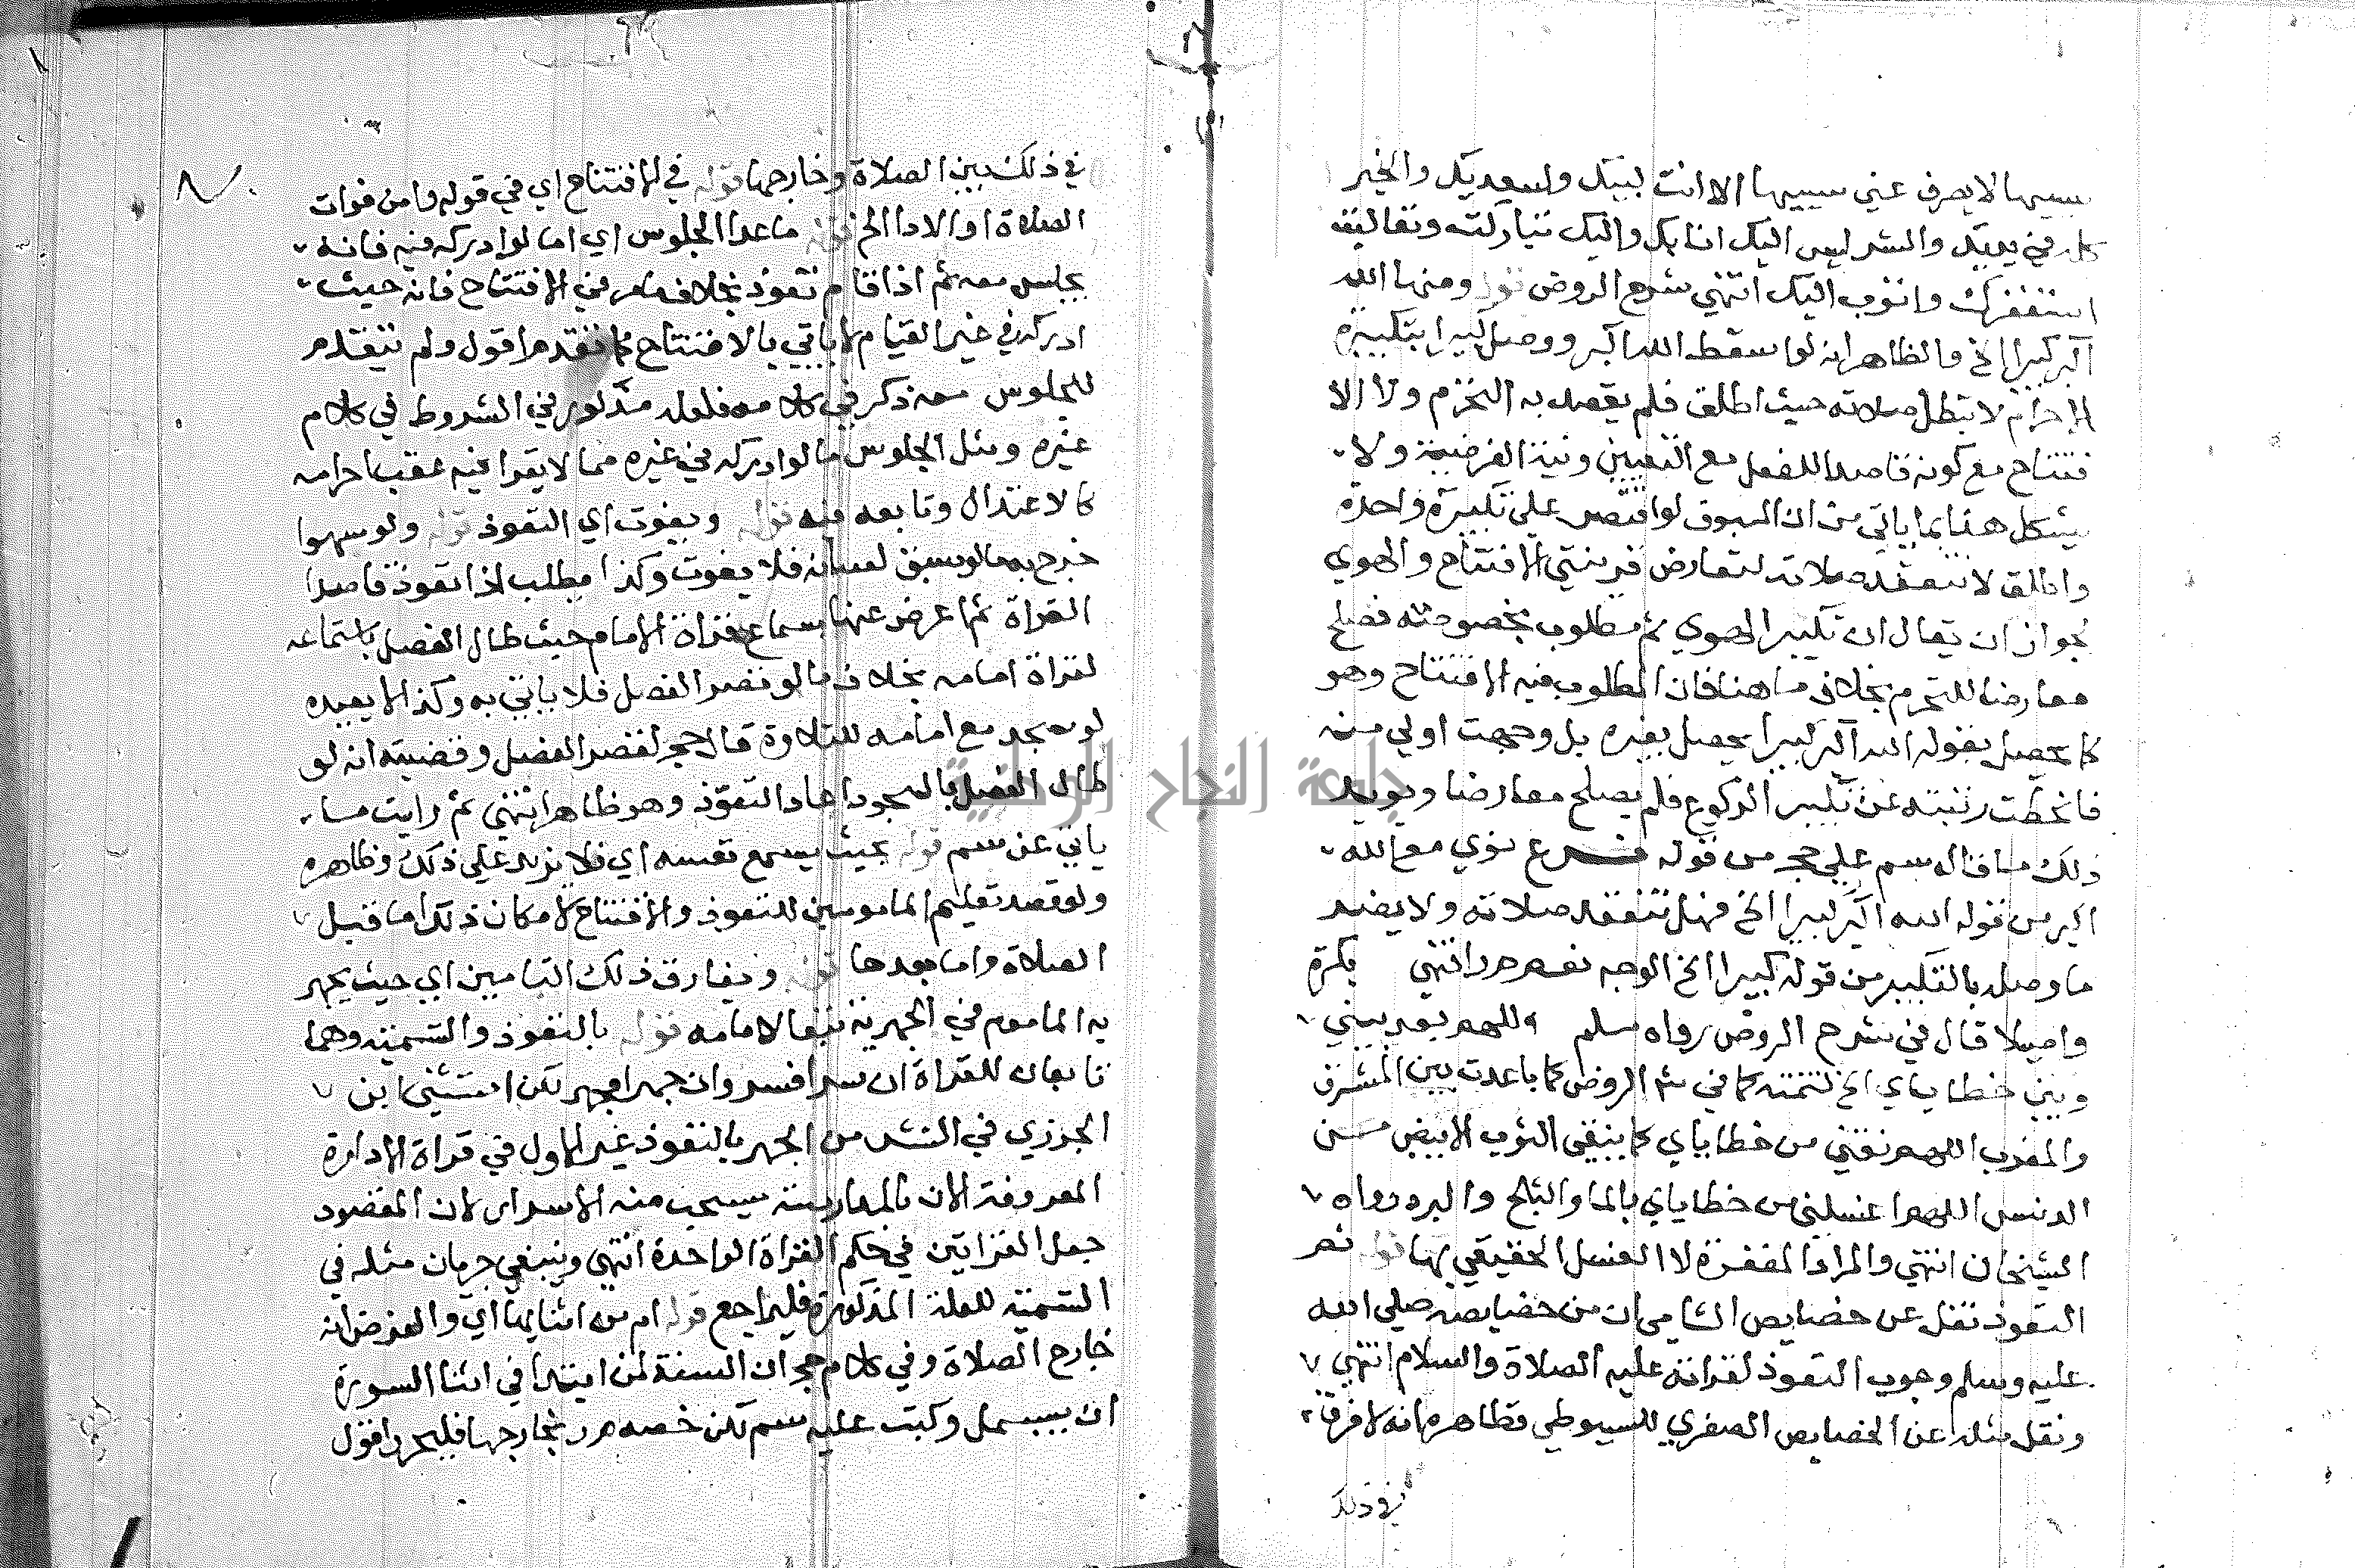 سييها لا يصرف عني سييها الا انت لبيك وسعديك والخير
كله في يديك والشر ليس اليك انا بك واليك تباركت وتعاليت
استغفرك واتوب اليك انتهي شرح الروض قوله ومنها الله
اكبر كبيرا الخ والظاهر انه لو اسقط الله اكبر ووصل كبيرا بتكبيرة
الاحرام لا تبطل صلاته حيث اطلق فلم يقصد به التحرم ولا الا
فتتاح مع كونه قاصدا للفعل مع التعيين ونية الفرضية ولا
يشكل هذا بما ياتي من ان المسبوق لو اقتصر علي تكبيرة واحدة
واطلق لا تنعقد صلاته لتعارض قرينتي الافتتاح والهوي
لجواز ان يقال ان تكبير الهوي ثم مطلوب بخصوصه فصلح
معارضا للتحرم بخلاف ما هنا فان المطلوب فيه الافتتاح وهو
كما يحصل بقوله الله اكبر كبيرا يحصل بغيره بل وجهت اولي منه
فانحطت رتبته عن تكبير الركوع فلم يصلح معارضا ويويد
ذلك ما قال سم علي حجر من قوله فرع نوي مع الله
اكبر من قوله الله اكبر كبيرا الخ فهل تنعقد صلاته ولا يضر
ما وصله بالتكبير من قوله كبيرا الخ الوجه نعم م ر انتهي بكرة
واصيلا قال في شرح الروض رواه مسلم واللهم بعد بيني
وبين خطاياي الخ تتمته كما في ش الروض كما باعدت بين المشرق
والمغرب اللهم نقني من خطاياي كما ينقي الثوب الابيض من
الدنس اللهم اغسلني من خطاياي بالما والثلج والبرد رواه
الشيخان انتهي والمراد المغفرة لا الغسل الحقيقي بها قوله ثم
التعوذ نقل عن خصايص الشامي ان من خصايصه صلي الله
عليه وسلم وجوب التعوذ لقراته عليه الصلاة والسلام انتهي
ونقل مثله عن الخصايص الصغري للسيوطي فظاهره انه لا فرق
في ذلك
في ذلك بين الصلاة وخارجها قوله في الافتتاح اي في قوله وامن فوات
الصلاة او الادا الخ قوله ماعدا الجلوس اي اما لو ادركه فيه فانه
يجلس معه ثم اذا قام تعوذ بخلاف مامر في الافتتاح فانه حيث
ادركه في غير القيام لا ياتي بالافتتاح مما تقدم اقول ولم يتقدم
للجلوس معه ذكر في كلامه فلعله مذكور في الشروط في كلام
غيره ومثل الجلوس ما لو ادركه في غيره مما لا يقرا فيه عقب احرامه
كالاعتدال وتابعه فيه قوله ويفوت اي التعوذ قوله ولو سهوا
خرج به ما لو سبق لسانه فلا يفوت وكذا يطلب اذا تعوذ قاصدا
القراة ثم اعرض عنها بسماع قراة الامام حيث طال الفصل باستماعه
لقراة امامه بخلاف ما لو قصر الفصل فلا ياتي به وكذا لا يعيده
لو سجد مع امامه للتلاوة قال حجر لقصر الفصل وقضيته انه لو
طال الفصل بالسجود اعاد التعوذ وهو ظاهر انتهي ثم رايت ما
ياتي عن سم قوله بحيث يسمع نفسه اي فلا يزيد علي ذلك وظاهره
ولو قصد تعليم المامومين للتعوذ والافتتاح لامكان ذلك اما قبل
الصلاة واما بعدها قوله ويفارق ذلك التامين اي حيث يجهر
به الماموم في الجهرية تبعا لامامه قوله بالتعوذ والتسمية وهما
تابعان للقراة ان سرا فسر وان جهرا فجهر لكن استثني ابن
الجزري في النشر من الجهر بالتعوذ غير الاول في قراة الادارة
المعروفة الان بالمدارسة يستحب منه الاسرار لان المقصود
جعل القراتين في حكم القراة الواحدة انتهي وينبغي جريان مثله في
التسمية للعلة المذكورة فليراجع قوله ام من اثنايها اي والفرض انه
خارج الصلاة وفي كلام حجر ان السنة لمن ابتدا في اثنا السورة
ان يبسمل وكتب عليه سم لكن خصه م ر بخارجها فليحرر اقول
جامعة النجاح الوطنية